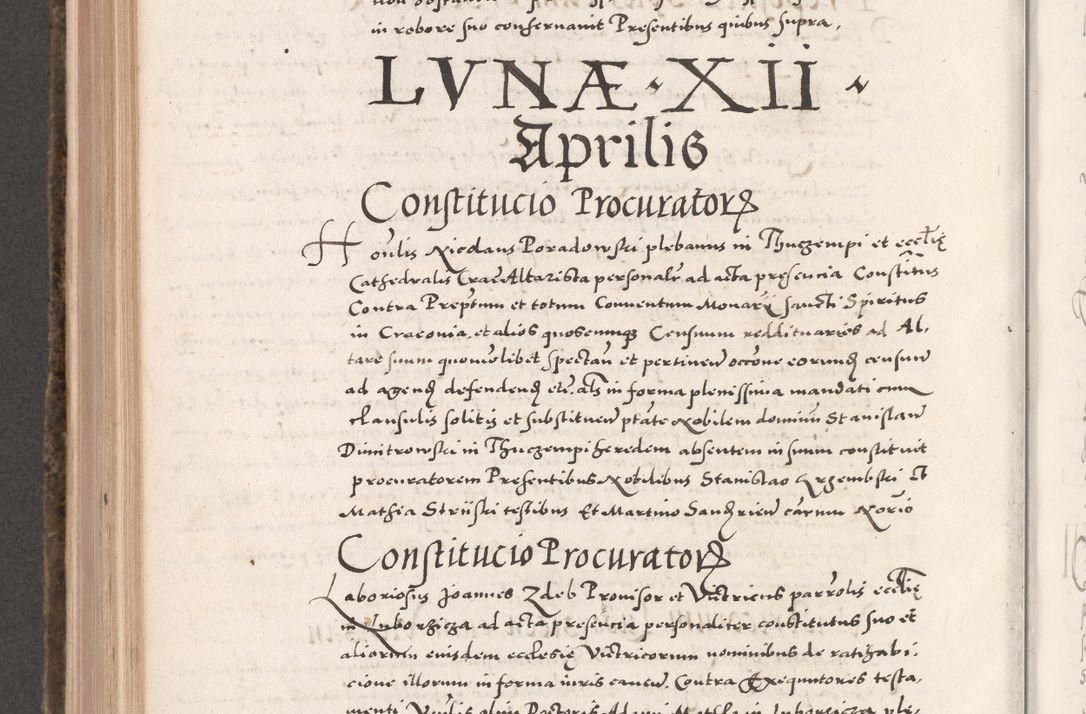 in robore suo conservavit Presentibus quibus supra.
LVNÆ · XII ·
Aprilis
Constitucio Procuratorꝝ
Honlis Nicolaus Poradowski plebanus in Thuczempi et eccl̄ię
Cathedralis Crac̄ Altarista personalr̄ ad acta presencia Constit̄us
Contra Preptum et totum Conventum Monarȳ Sancti Spiritus
in Cracovia, et alios quoscumqꝫ Censuum reddituarios ad Al,
tare suum quomōlibet spectan̄ et pertinen̄ occ̄one eorundꝫ censuum
ad agendꝫ defendendꝫ etc̄. ats̄ in forma plenissima mandati cum
clausulis solitis et substituen̄ ptāte Nobilem dominum Stanislaū
Dimitrowski in Thuczempi heredem absentem in suum constituit
procuratorem Presentibus Nobilibus Stanislao Krzembski et
Mathia Striiski testibus Et Martino Sandꝫrien̄ car̄um Nor̄io
Constitucio Procuratorꝝ
Laboriosus Joannes Zdeb Provisor et Victricus parr̄olis eccl̄ię
in Luborzicza ad acta presencia personaliter constitutus suo et
aliorum eiusdem ecclesię Victricorum nominibus de ratihabi,
cione illorum in forma iuris caven̄. Contra Exequutores testa,
menti olim Doctoris Adami in Luborzicza ple,